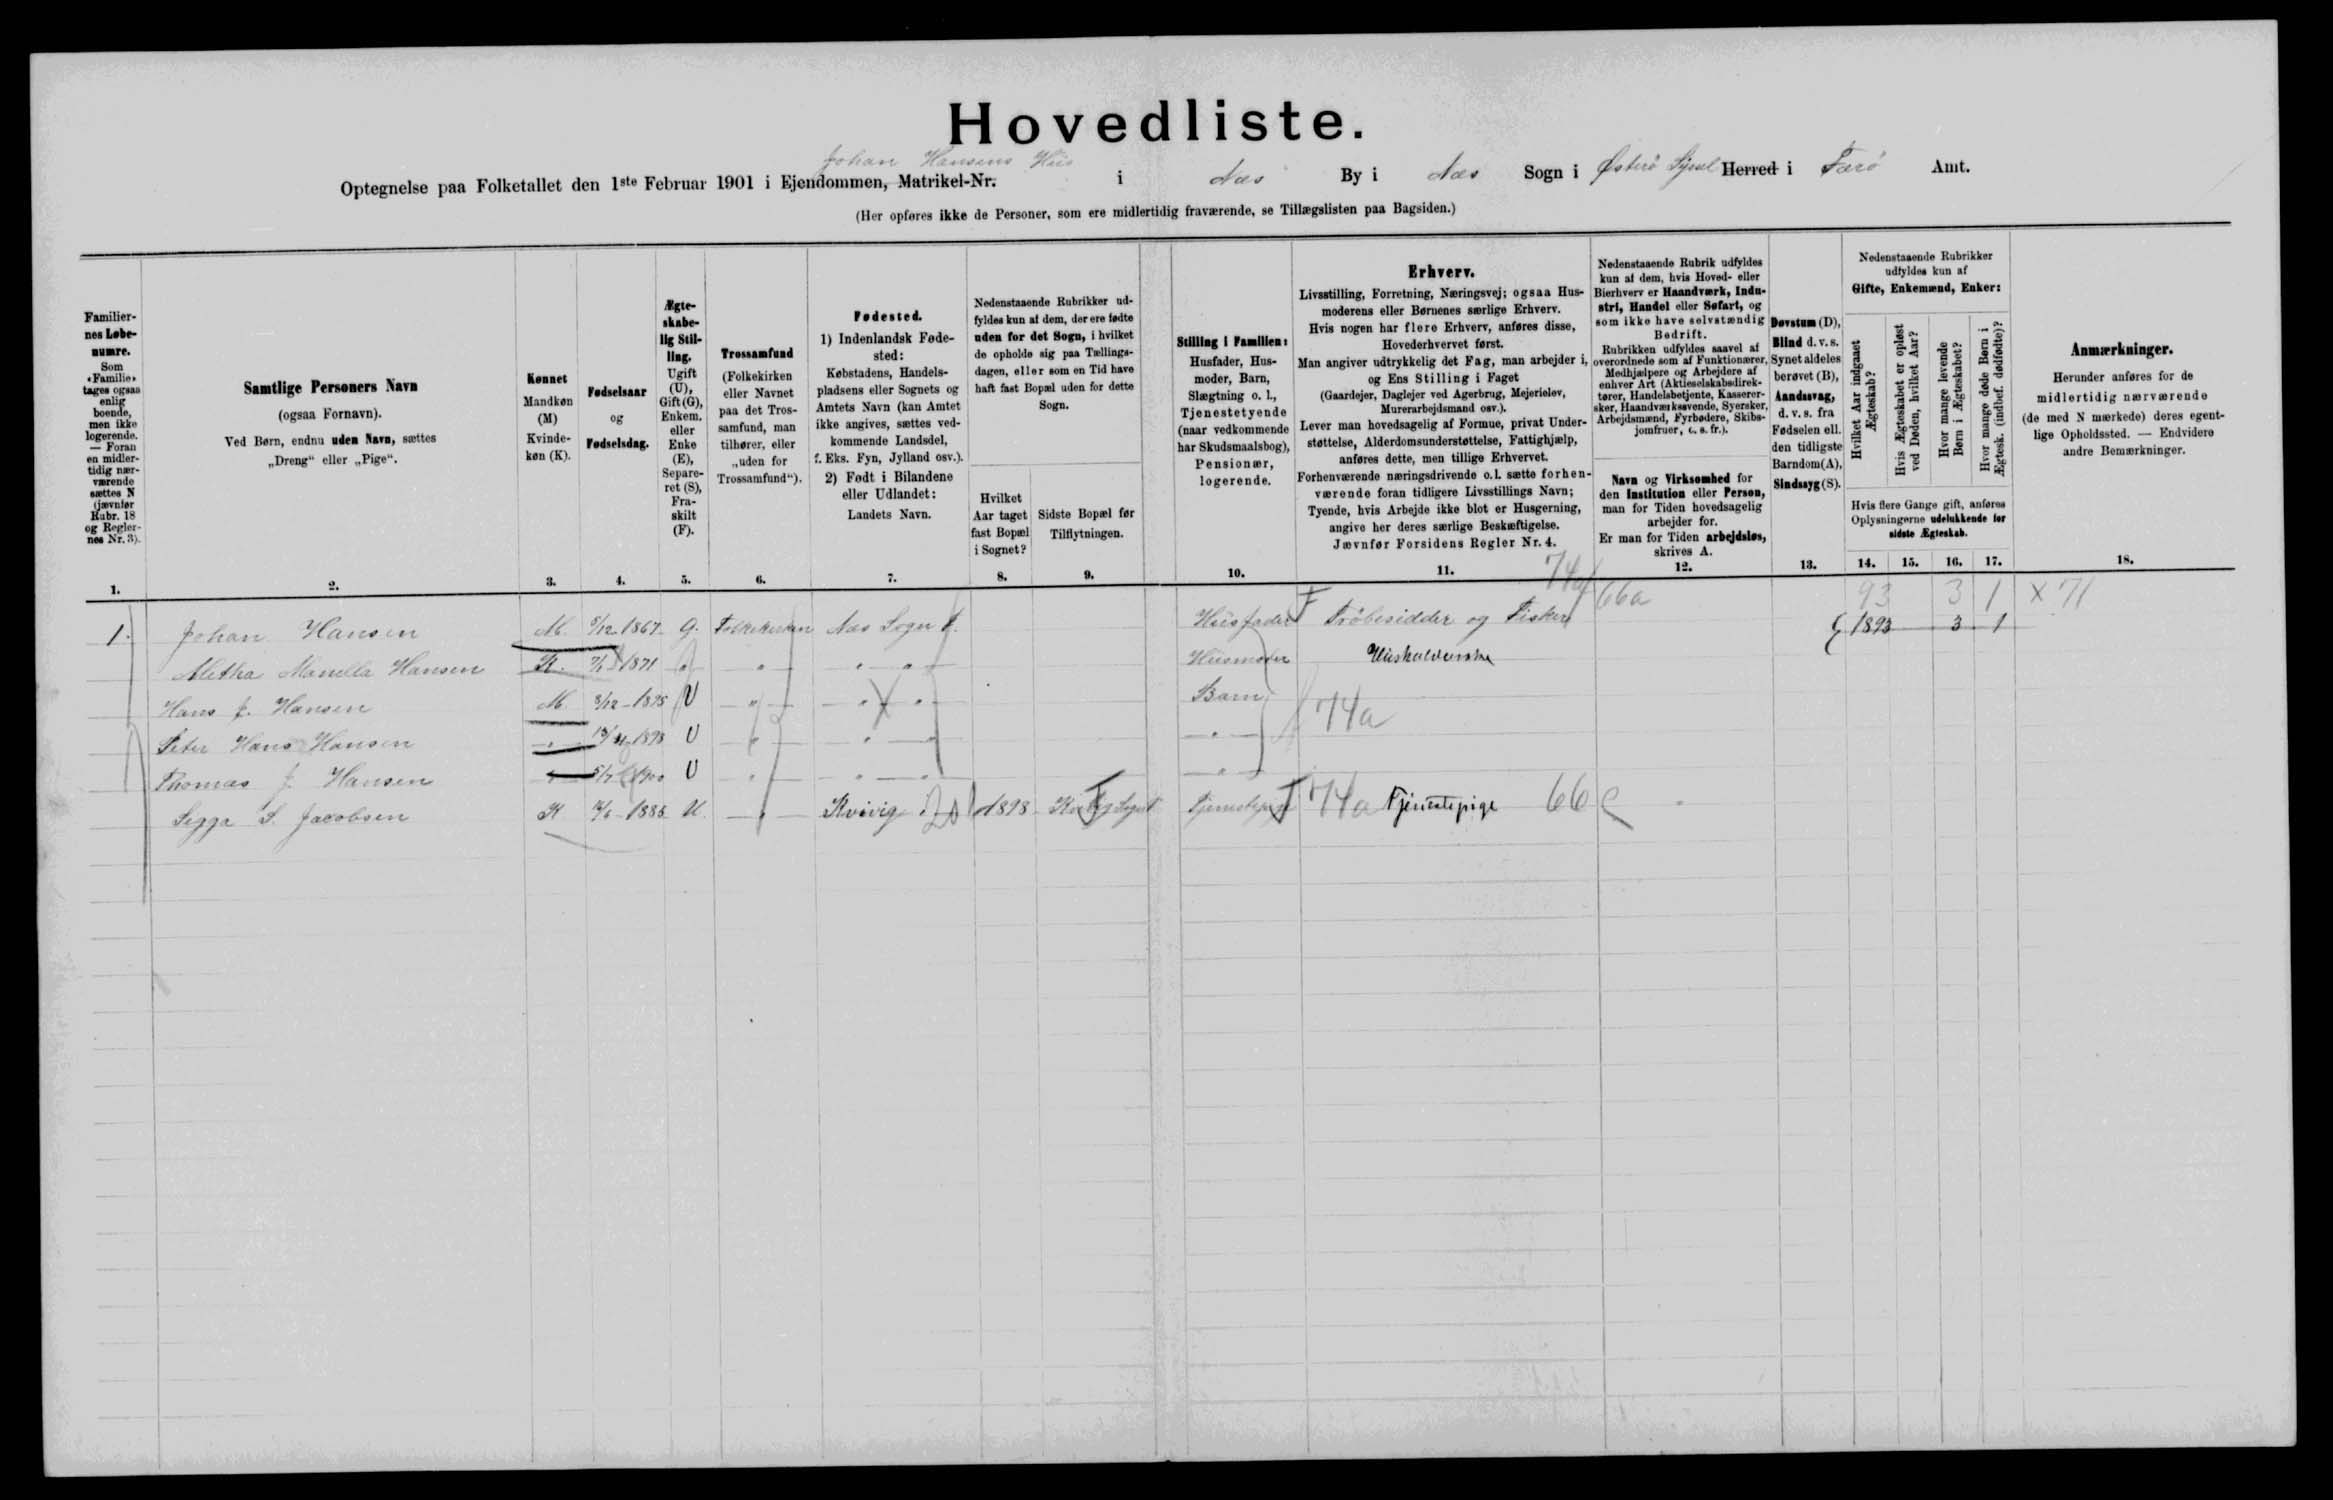 Hovedliste.
Johan Hansens Hus
Optegnelse paa Folketallet den 1ste Februar 1901 i Ejendommen, Matrikel-Nr. i Næs By i Næs Sogn i Østerö Sÿssel Herred i Færö Amt.
(Her opføres ikke de Personer, som ere midlertidig fraværende, se Tillægslisten paa Bagsiden.)
Familiernes Løbenumre.
Som «Familie» tages ogsaa enlig boende, men ikke logerende. — Foran en midlertidig nærværende sættes N (jævnfør Rubr. 18 og Reglernes Nr. 3).
1.
Samtlige Personers Navn
(ogsaa Fornavn).
Ved Børn, endnu uden Navn, sættes
„Dreng“ eller „Pige“.
2.
Kønnet
Mandkøn (M)
Kvindekøn (K).
3.
Fødselsaar
og
Fødselsdag.
4.
Ægteskabelig Stilling.
Ugift (U), Gift (G), Enkem. eller Enke (E), Separeret (S), Fraskilt (F).
5.
Trossamfund
(Folkekirken eller Navnet paa det Trossamfund, man tilhører, eller „uden for Trossamfund“).
6.
Fødested.
1) Indenlandsk Fødested:
Købstadens, Handelspladsens eller Sognets og Amtets Navn (kan Amtet ikke angives, sættes vedkommende Landsdel, f. Eks. Fyn, Jylland osv.).
2) Født i Bilandene eller Udlandet:
Landets Navn.
7.
Nedenstaaende Rubrikker udfyldes kun af dem, der ere fødte uden for det Sogn, i hvilket de opholde sig paa Tællingsdagen, eller som en Tid have haft fast Bopæl uden for dette Sogn.
Hvilket Aar taget fast Bopæl i Sognet?
8.
Sidste Bopæl før Tilflytningen.
9.
Stilling i Familien:
Husfader, Husmoder, Barn, Slægtning o. l., Tjenestetyende (naar vedkommende har Skudsmaalsbog), Pensionær, logerende.
10.
Erhverv.
Livsstilling, Forretning, Næringsvej; ogsaa Husmoderens eller Børnenes særlige Erhverv.
Hvis nogen har flere Erhverv, anføres disse, Hovederhvervet først.
Man angiver udtrykkelig det Fag, man arbejder i, og Ens Stilling i Faget
(Gaardejer, Daglejer ved Agerbrug, Mejerielev, Murerarbejdsmand osv.).
Lever man hovedsagelig af Formue, privat Understøttelse, Alderdomsunderstøttelse, Fattighjælp, anføres dette, men tillige Erhvervet.
Forhenværende næringsdrivende o. l. sætte forhenværende foran tidligere Livsstillings Navn;
Tyende, hvis Arbejde ikke blot er Husgerning, angive her deres særlige Beskæftigelse.
Jævnfør Forsidens Regler Nr. 4.
11.
Nedenstaaende Rubrik udfyldes kun af dem, hvis Hoved- eller Bierhverv er Haandværk, Industri, Handel eller Søfart, og som ikke have selvstændig Bedrift.
Rubrikken udfyldes saavel af overordnede som af Funktionærer, Medhjælpere og Arbejdere af enhver Art (Aktieselskabsdirektører, Handelsbetjente, Kasserersker, Haandværkssvende, Syersker, Arbejdsmænd, Fyrbødere, Skibsjomfruer, o. s. fr.).
Navn og Virksomhed for den Institution eller Person, man for Tiden hovedsagelig arbejder for.
Er man for Tiden arbejdsløs, skrives A.
12.
Døvstum (D),
Blind d. v. s. Synet aldeles berøvet (B),
Aandssvag, d. v. s. fra Fødselen ell. den tidligste Barndom (A),
Sindssyg (S).
13.
Nedenstaaende Rubrikker udfyldes kun af
Gifte, Enkemænd, Enker:
Hvilket Aar indgaaet Ægteskab?
Hvis Ægteskabet er opløst ved Døden, hvilket Aar?
Hvor mange levende Børn i Ægteskabet?
Hvor mange døde Børn i Ægtesk. (indbef. dødfødte)?
Hvis flere Gange gift, anføres Oplysningerne udelukkende for sidste Ægteskab.
14. 15. 16. 17.
Anmærkninger.
Herunder anføres for de midlertidig nærværende (de med N mærkede) deres egentlige Opholdssted. — Endvidere andre Bemærkninger.
18.
74a 66a 93 3 1 x 71
1. Johan Hansen M. 8/12 1867 G. Folkekirken Næs Sogn Husfader Fröbesidder og Fisker 1893 3 1
Metha Manella Hansen K. 1871 " " " Husmoder Husholderske
Hans J. Hansen M. 8/12 - 1895 U " " " Barn 74a
Peter Hans Hansen " 1898 U " " " "
Thomas J. Hansen " 1900 U " " " "
Sigga S. Jacobsen K 1885 U. " Kvivig 20 1898 Tjenestepige 74a Tjenestepige 66c